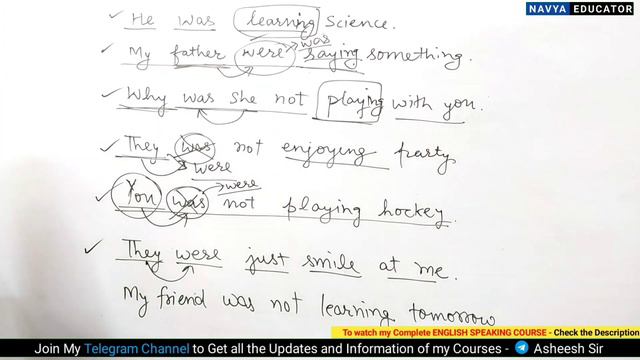 NAVYA EDUCATOR
He was learning Science.
was
My father were saying something.
Why was she not playing with you.
They was not enjoying party
were
were
You was not playing hockey.
They were just smile at me.
My friend was not learning tomorrow
To watch my Complete ENGLISH SPEAKING COURSE - Check the Description
Join My Telegram Channel to Get all the Updates and Information of my Courses - Asheesh Sir